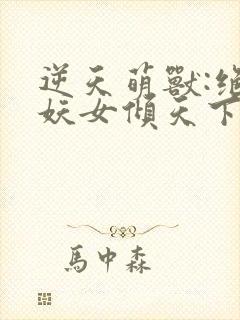 逆天萌獸:絕
妖女傾天下
馬中森